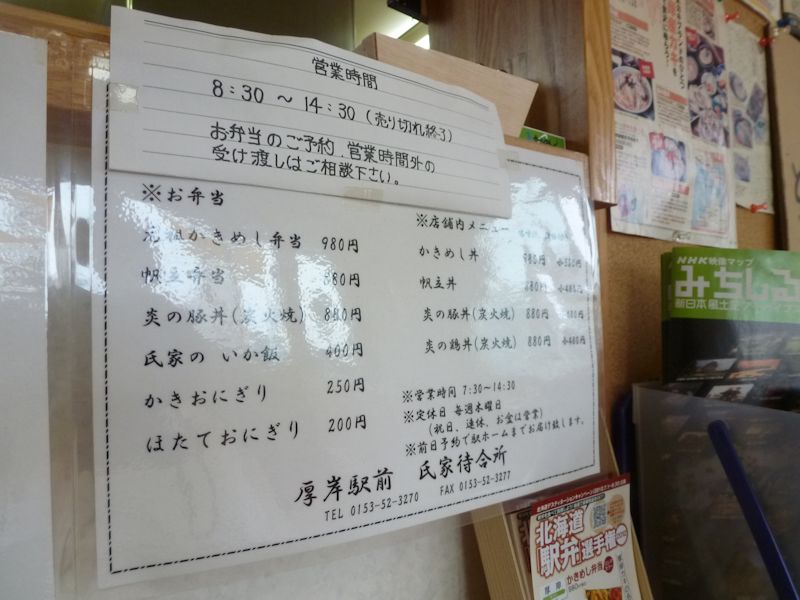 営業時間
8:30 ～ 14:30 (売り切れ終了)
お弁当のご予約、営業時間外の
受け渡しはご相談下さい。
※お弁当
元祖かきめし弁当 980円
帆立弁当 880円
炎の豚丼(炭火焼) 880円
氏家の いか飯 400円
かきおにぎり 250円
ほたておにぎり 200円
※店舗内メニュー
かきめし丼 980円
帆立丼 880円 小480円
炎の豚丼(炭火焼) 880円
炎の鶏丼(炭火焼) 880円 小480円
※営業時間 7:30～14:30
※定休日 毎週木曜日
(祝日、連休、お盆は営業)
※前日予約で駅ホームまでお届け致します。
厚岸駅前 氏家待合所
TEL 0153-52-3270 FAX 0153-52-3277
NHK映像マップ
みちしる
新日本風土記
北海道
駅弁選手権
厚岸
かきめし弁当